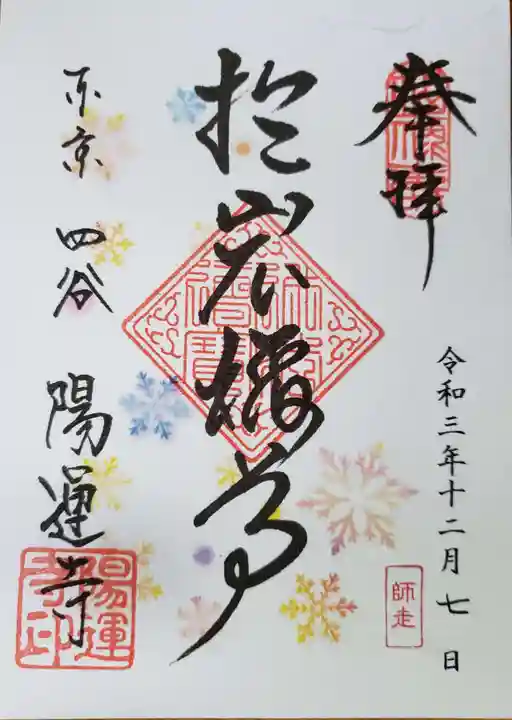 奉拝
令和三年十二月七日
師走
於岩
東京 四谷 陽運寺
陽運寺印